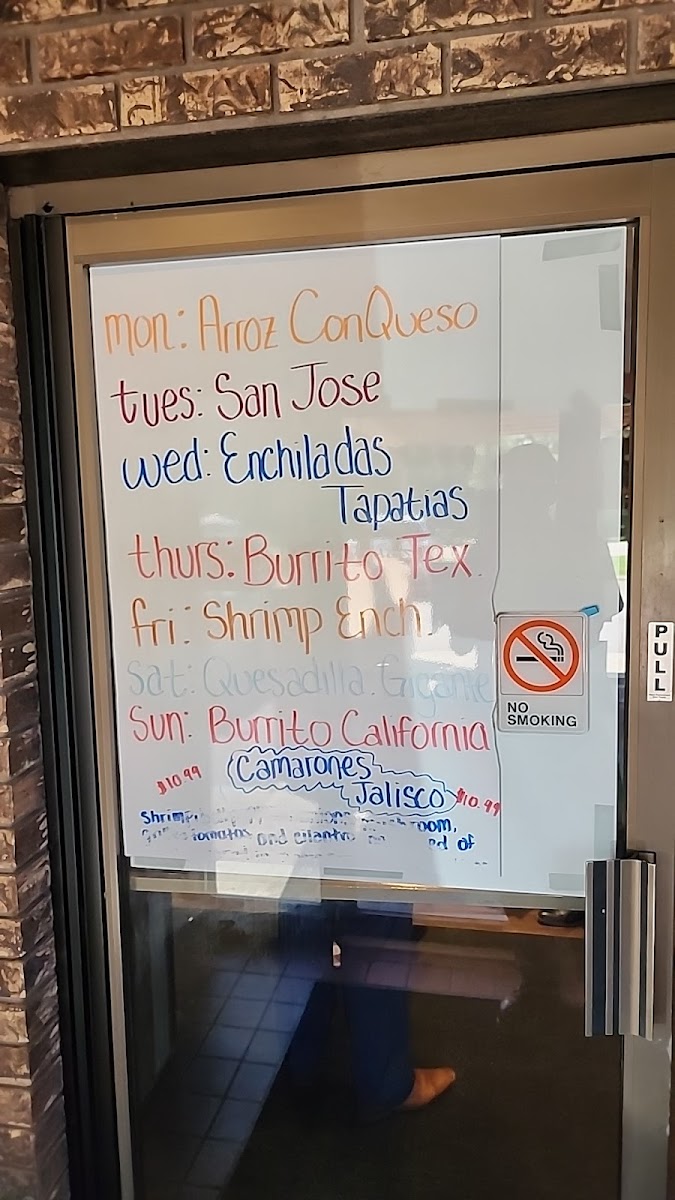 mon: Arroz ConQueso
tues: San Jose
wed: Enchiladas
Tapatias
thurs: Burrito Tex.
fri: Shrimp Ench.
Sat: Quesadilla. Gigante
Sun: Burrito California
$10.99 Camarones
Jalisco $10.99
Shrimp room,
tomatos and cilantro ed of
NO
SMOKING
PULL